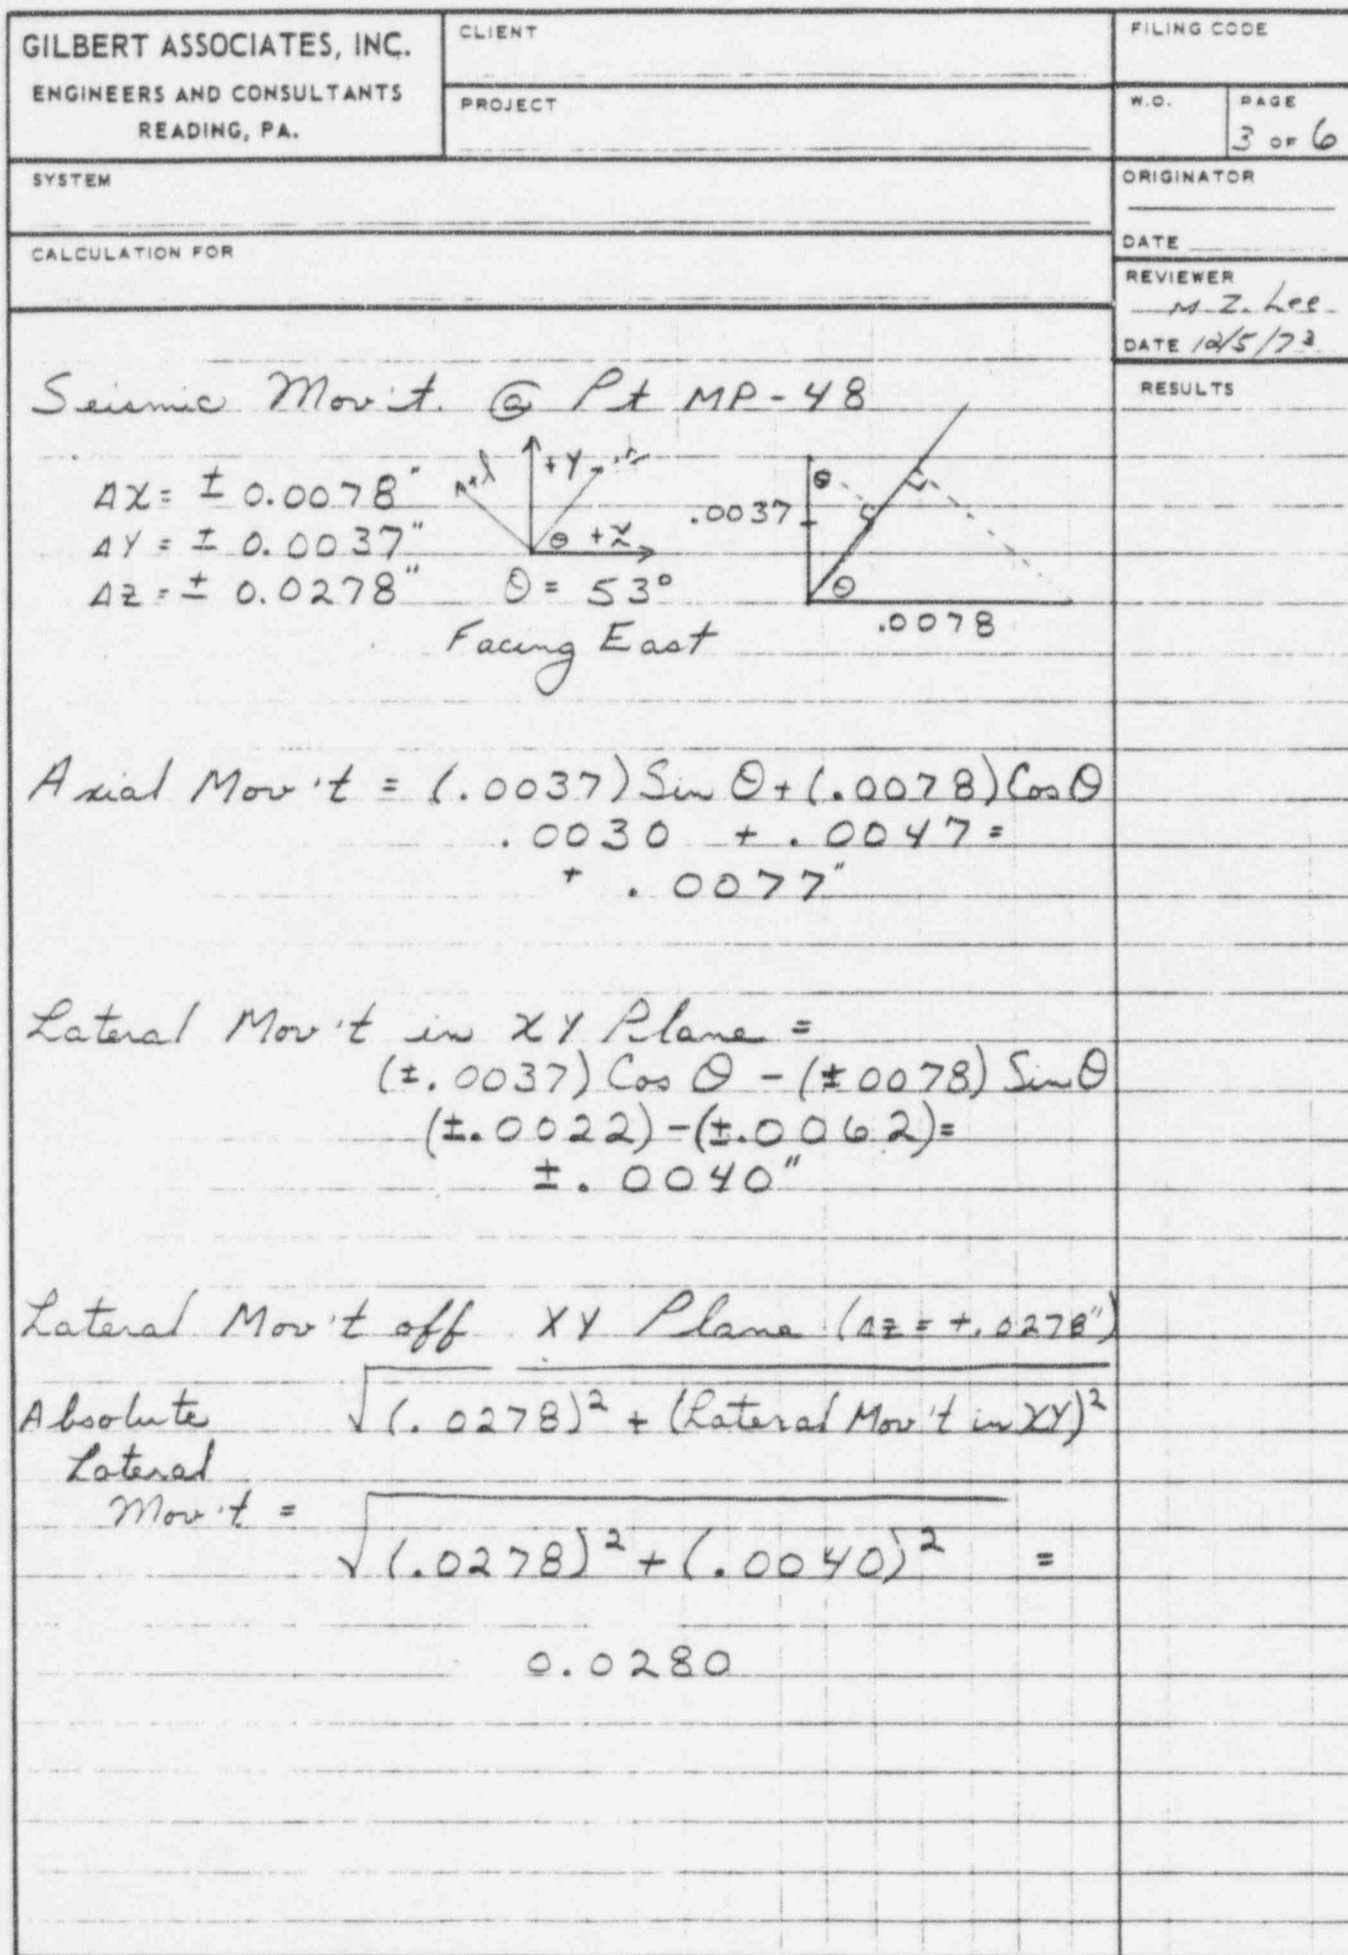 GILBERT ASSOCIATES, INC.
ENGINEERS AND CONSULTANTS
READING, PA.
CLIENT
PROJECT
FILING CODE
W.O.
PAGE
3 OF 6
SYSTEM
ORIGINATOR
DATE
CALCULATION FOR
REVIEWER
M. Z. Lee
DATE 12/5/73
RESULTS
Seismic Mov't. @ Pt MP-48
ΔX = ± 0.0078"
ΔY = ± 0.0037"
ΔZ = ± 0.0278"
+Y
θ +X
θ = 53°
Facing East
θ
.0037
θ
.0078
Axial Mov't = (.0037) Sin θ + (.0078) Cos θ
.0030 + .0047 =
+ .0077"
Lateral Mov't in XY Plane =
(±.0037) Cos θ - (±0078) Sin θ
(±.0022) - (±.0062) =
±.0040"
Lateral Mov't off XY Plane (ΔZ = +.0278")
Absolute √(.0278)² + (Lateral Mov't in XY)²
Lateral
Mov't =
√(.0278)² + (.0040)² =
0.0280